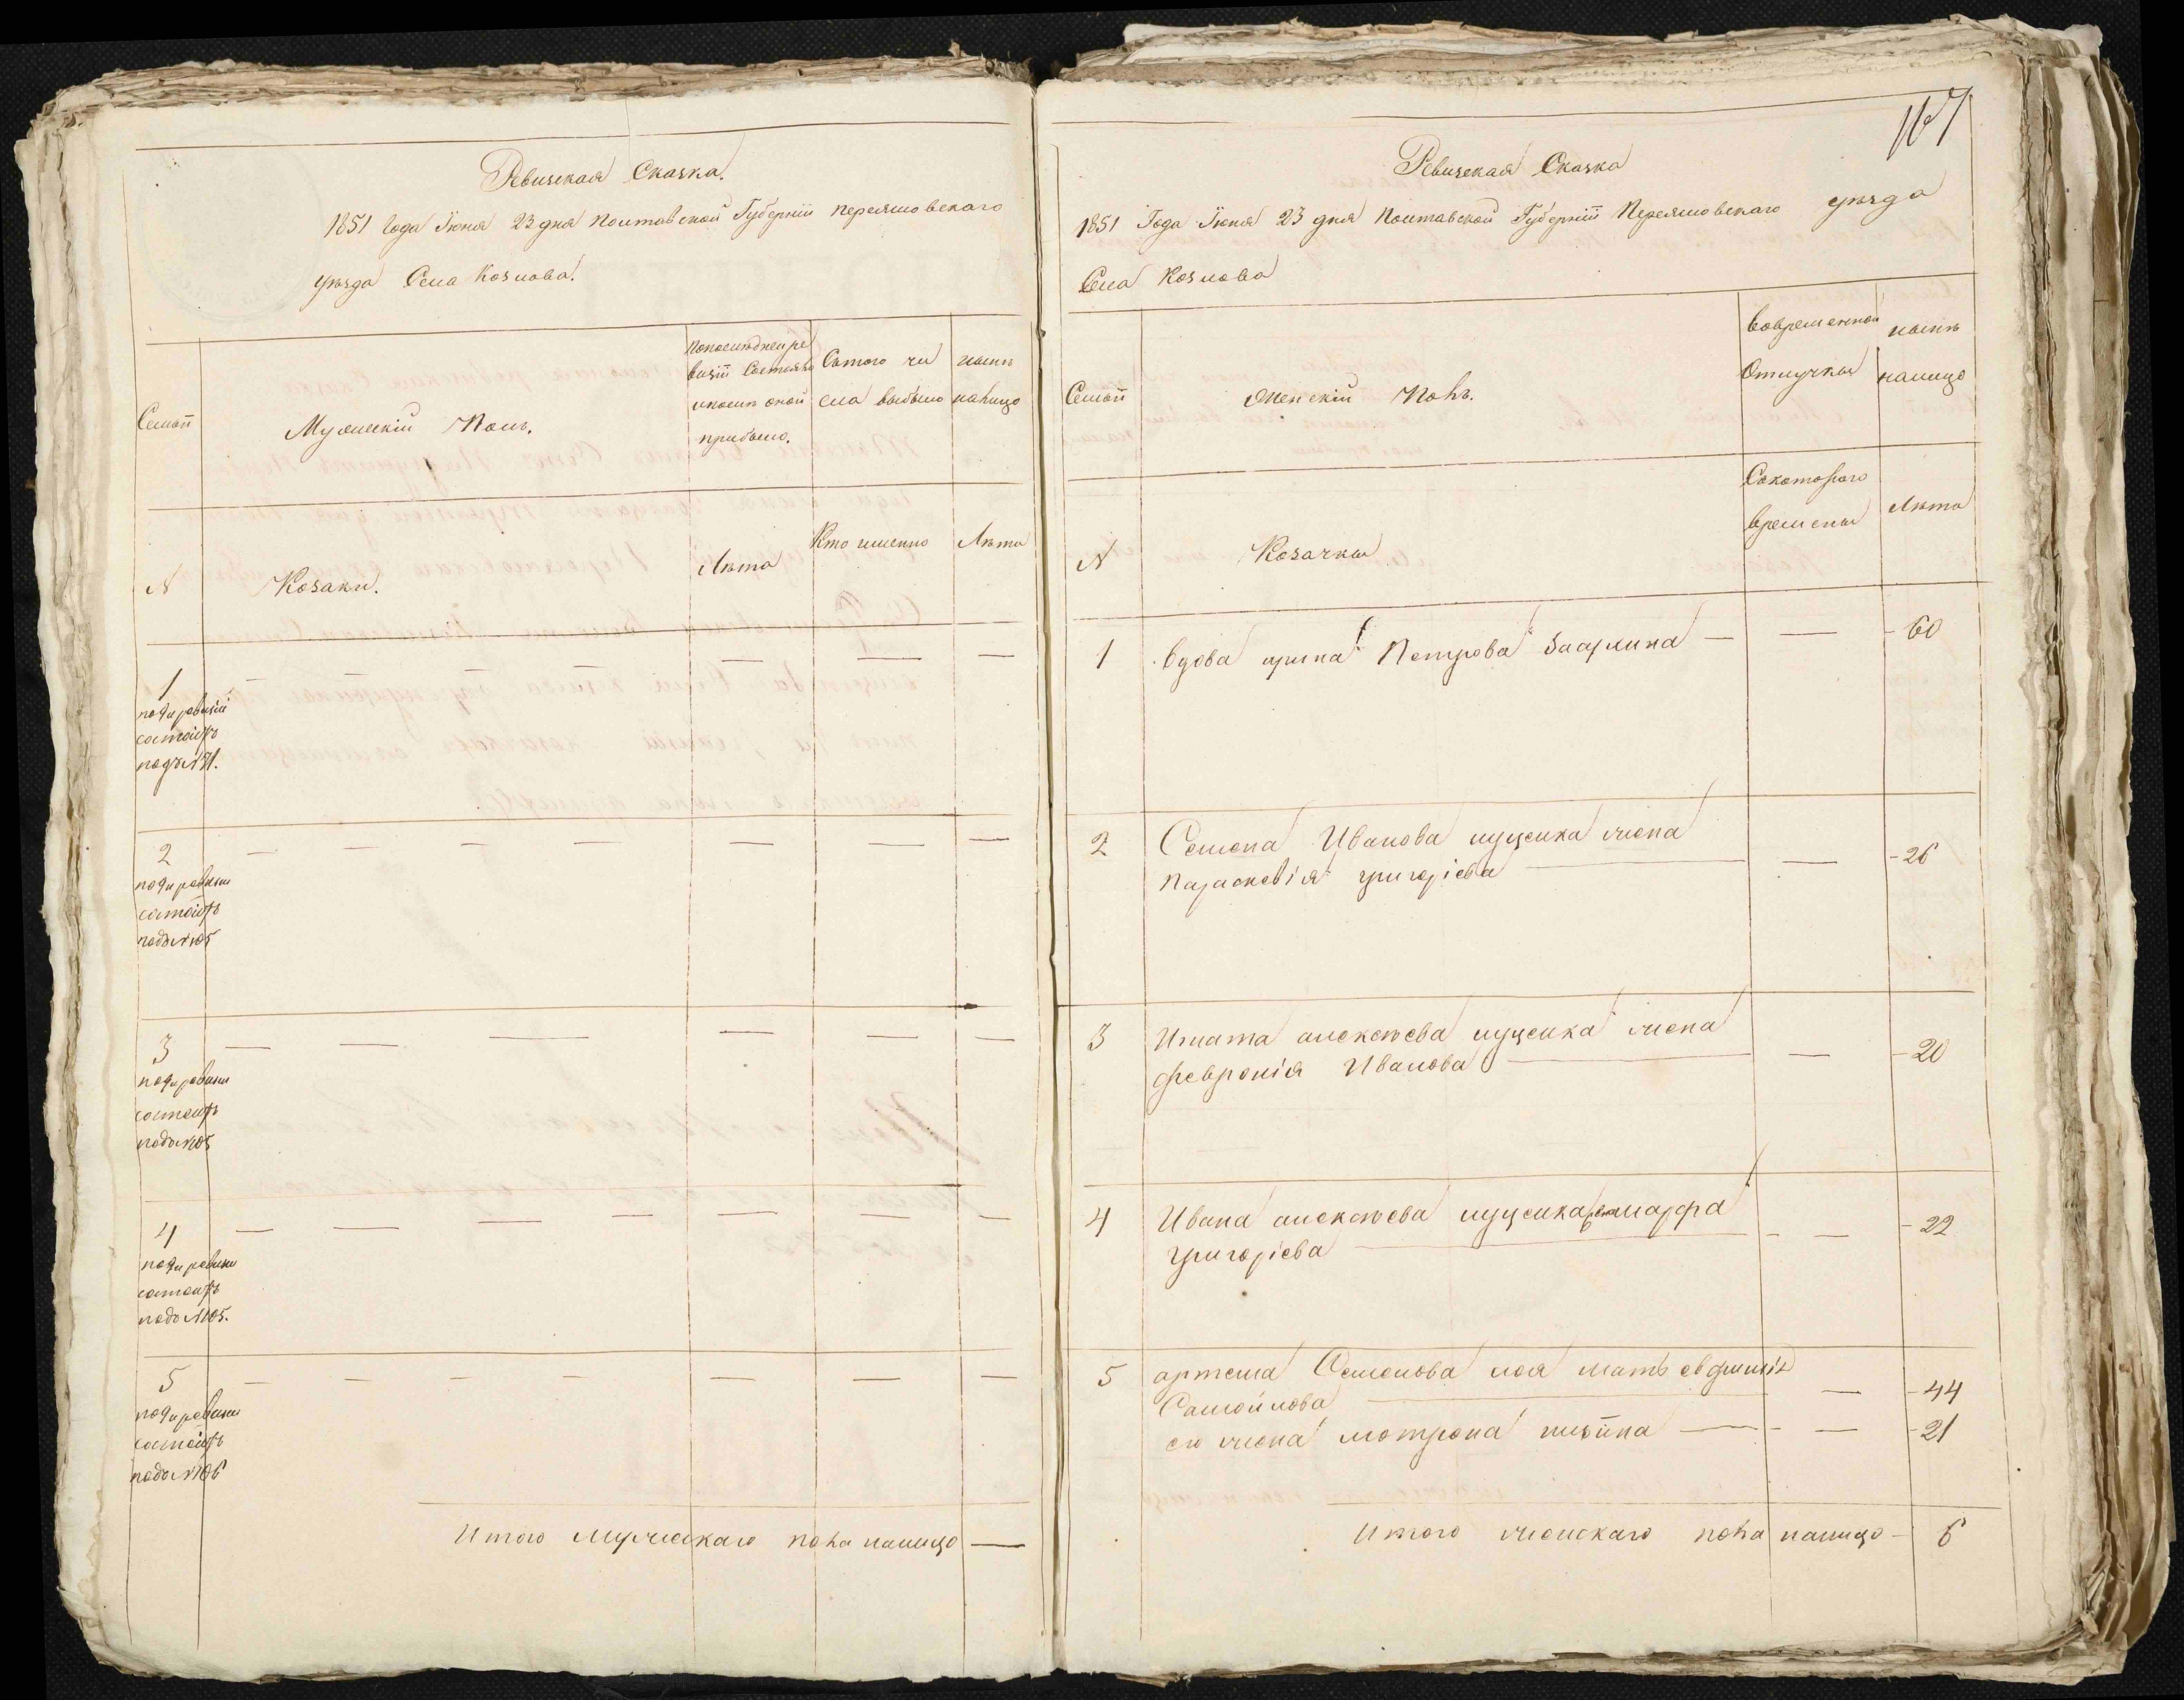 Ревизская Сказка.
1851 Года Июня 23 дня Полтавской Губерніи Переяловскаго
уѣзда Села Козлова.
Семьи
Мужескій Полъ.
Попоследней ре
визіи Состояло
ипослѣ оной
прибыло.
Сътого чи
сла выбыло
нынѣ
налицо
N
Козаки.
Лѣта
Кто именно
Лѣта
1
по 9и ревизіи
состоитъ
2
по 9и ревизіи
состоитъ
подъ N 105
3
по 9и ревизіи
состоитъ
подъ N 105
4
по 9и ревизіи
состоитъ
подъ N 105.
5
по 9и ревизіи
состоитъ
подъ N 106
Итого мужескаго пола налицо —
167
Ревизская Сказка
1851 Года Июня 23 дня Полтавской Губерніи Переяловскаго уѣзда
Села Козлова
Семьи
Женскій Полъ.
вовременной
Отлучки
нынѣ
налицо
N
Козачки
Скотораго
времены
Лѣта
1 вдова ирина Петрова — — 60
2 Семена Иванова луценка жена
Параскевія григоріева — — 26
3 Игната алексѣева луценка жена
февронія Иванова — — 20
4 Ивана алексѣева луценка жена марфа
григоріева — — 22
5 артема Семенова мать евфимія
Самойлова — — 44
его жена мотрона — — 21
Итого женскаго пола налицо — 6